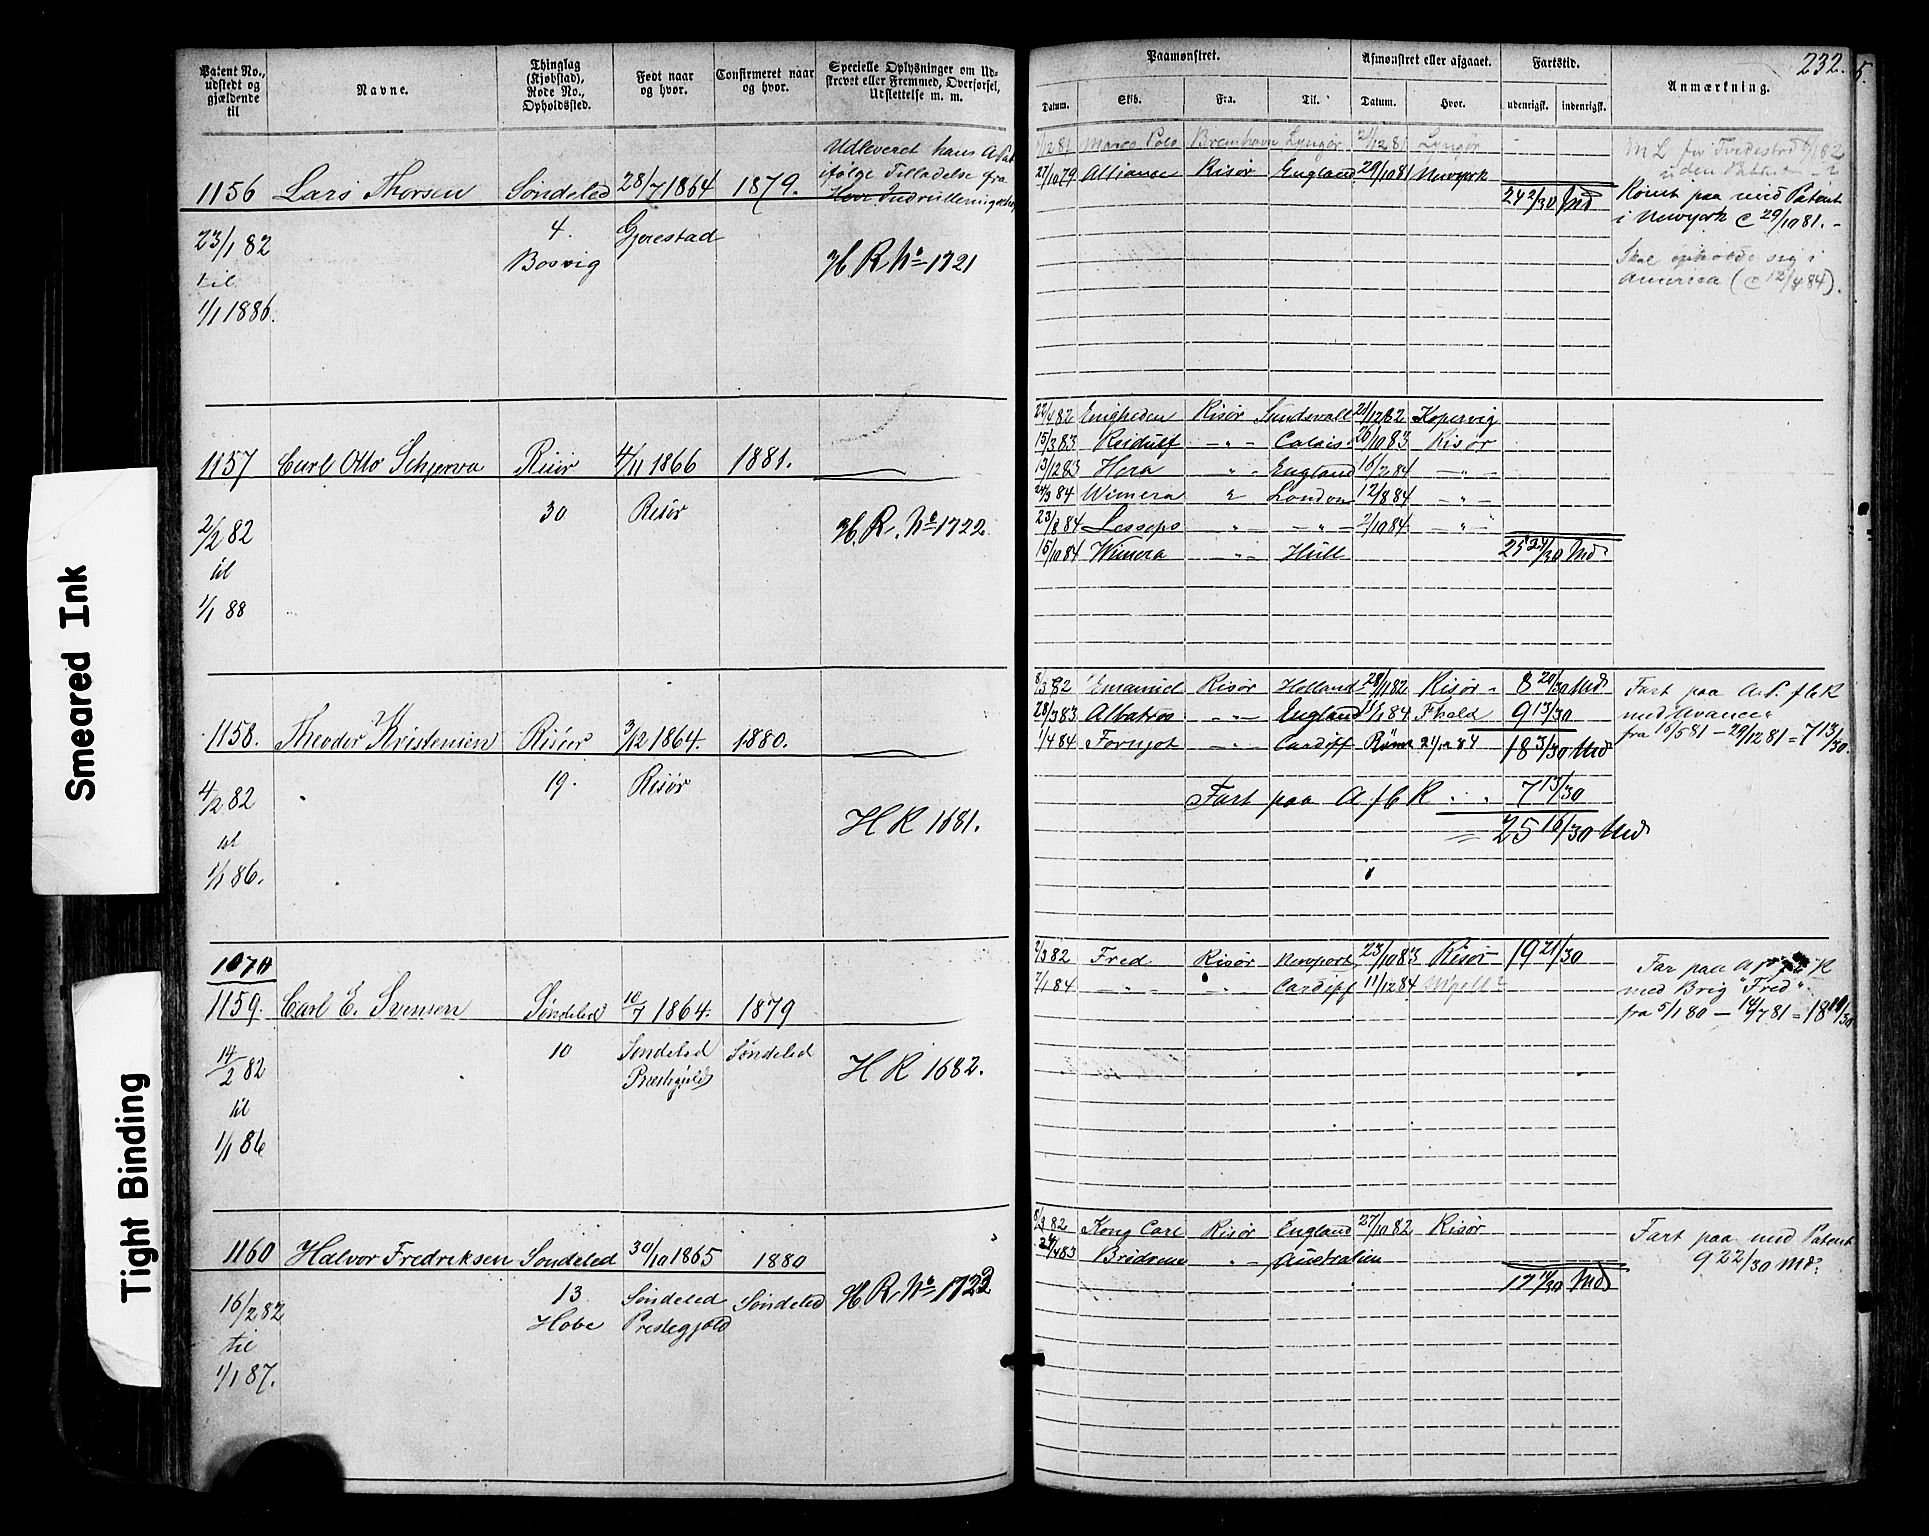 232.
5.
Patent No., udstedt og gjældende til
Navne.
Thinglag (Kjøbstad), Rode No., Opholdssted.
Født naar og hvor.
Confirmeret naar og hvor.
Specielle Oplysninger om Udskrevet eller Fremmed, Overførsel, Udslettelse m. m.
Paamønstret.
Afmønstret eller afgaaet.
Fartstid.
Anmærkning.
Datum.
Skib.
Fra.
Til.
Datum.
Hvor.
udenrigsk.
indenrigsk.
1156 Lars Thorsen Søndeled 28/7 1864 1879.
Udleveret hans A Pat
ifølge Tilladelse fra
4. Gjerestad
Bosvig
23/1 82
til
1/1 1886.
H R No 1721
Marco Polo Bremhavn Lyngør 81 Lyngør
27/10 79 Alliance Risør England 29/10 81 Newyork
24 2/30 Md
uden Patent
Rømt paa med Patent
i Newyork c 29/10 81.
Skal opholde sig i
America (c 12/4 84).
1157 Carl Otto Schjerva Risør 4/11 1866 1881.
30 Risør
2/2 82
til
1/1 88
H. R. No 1722
22/4 82 Enigheden Risør Sundsvall 21/12 82 Kopervig
15/3 83 Reidulf " Calais 26/10 83 Risør
13/12 83 Hera " England 16/2 84 "
24/3 84 Wimera " London 12/8 84 "
23/8 84 Lesseps " " 2/10 84 "
15/10 84 Wimera " Hull
25 24/30 Md
1158. Theodor Kristensen Risøer 3/12 1864. 1880.
19. Risør
4/2 82
til
1/1 86.
H R 1681.
8/3 82 Emanuel Risør Holland 28/11 82 Risør 8 20/30 Md
28/3 83 Albatros " England 11/1 84 Fhald 9 13/30
1/4 84 Fornjot " Cardiff Rømt 21/12 84 18 3/30 Md
Fart paa A f b R 7 13/30
25 16/30 Md
Fart paa A.P. f b R
med "Avance"
fra 16/5 81 – 29/12 81 = 7 13/30.
1070
1159. Carl E. Svensen Søndeled 10/7 1864. 1879
10 Søndeled Søndeled
Præstegjeld
14/2 82
til
1/1 86
H R 1682.
2/3 82 Fred Risør Newport 23/10 83 Risør 19 21/30
7/1 84 " " Cardiff 11/12 84
Far paa A R
med Brig "Fred".
fra 5/1 80 – 14/7 81 = 18 10/30
1160 Halvor Fredriksen Søndeled 30/10 1865 1880
13 Søndeled Søndeled
Hobe Prestegjeld
16/2 82
til
1/1 87.
H R. No 1723
8/3 82 Kong Carl Risør England 27/10 82 Risør
24/4 83 Brødrene " Australien
17 Md
Fart paa med Patent
9 22/30 Md.
Smeared Ink
Tight Binding